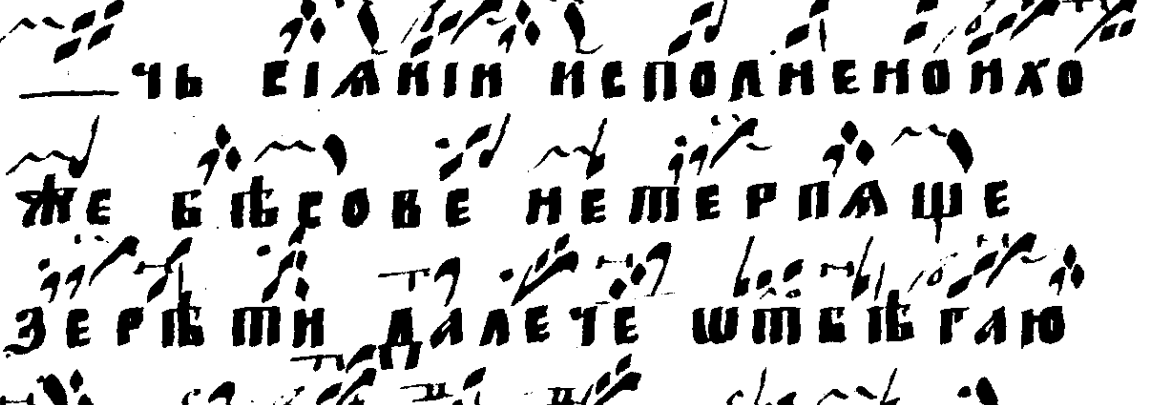 чь сіѧнін исполненоихо
же бѣсове нетерпѧще
зерѣти далече ѿбѣгаю